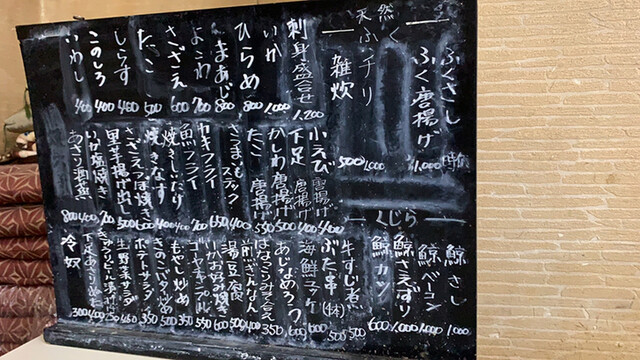 天然ふく
ふくさし 時価
ふく唐揚げ 1,000
チリ 1,000
雑炊 500
刺身盛合せ 1,200
いか 1,000
ひらめ 800
まあじ 800
よこわ 700
さざえ 600
たこ 500
しらす 400
このしろ 400
いわし 400
小えび唐揚げ 400
下足唐揚げ 400
かしわ唐揚げ 500
たこ唐揚げ 550
さつまいもスティック 400
カキフライ
魚フライ
焼きなす 400
さざえつぼ焼き 500
里芋揚げ出し
いか塩焼き 400
あさり酒蒸 800
くじら
鯨さし 1,000
鯨ベーコン 1,000
鯨さえずり 1,000
鯨カツ 600
牛すじ煮 500
ぶた串(1本)
海鮮ユッケ 600
あじなめろう 600
煎ぎんなん 400
湯豆腐 500
いかお好み焼き 600
ゴーヤチャンプル 550
もやし炒め 350
きのこバタ炒め
ポテトサラダ 350
生野菜サラダ 450
冷奴 300